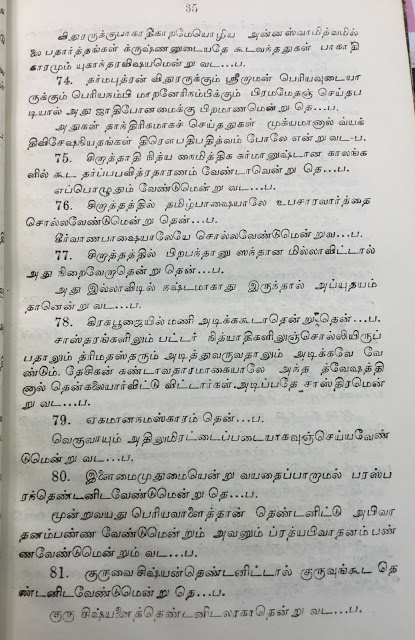 35
விதுரருக்குபாகாதிகாரமேயொழிய அன்னஸ்வாமித்வமில்
லை பதார்த்தங்கள் க்ருஷ்ணனுடையதே கூடவந்ததுகள் பாகாதி
காரமும் யுகாந்தரவிஷயமென்று வட...ப.
74. தர்மபுத்ரன் விதுரருக்கும் ஸ்ரீராமன் பெரியவுடையா
ருக்கும் பெரியநம்பி மாறனேரிநம்பிக்கும் பிரமமேதஞ் செய்தப
டியால் அது ஜாதிபோனமைக்கு பிரமாணமென்று தெ...ப.
அதுகள் தாந்திரிகமாகச் செய்ததுகள் முக்யமானால் வ்யக்
திவிசேஷநியதங்கள் திரௌபதிபதித்வம் போலே என்று வட-ப.
75. சிரார்த்தாதி நித்ய நைமித்திக கர்மானுஷ்டான காலங்க
ளில் கூட தர்ப்பபவித்ரதாரணம் வேண்டாவென்று தெ...ப.
எப்பொழுதும் வேண்டுமென்று வட...ப.
76. சிரார்த்தத்தில் தமிழ்பாஷையாலே உபசாரவார்த்தை
சொல்லவேண்டுமென்று தென்...ப.
கீர்வாணபாஷையாலேயே சொல்லவேண்டுமென்றுவ...ப.
77. சிரார்த்தத்தில் பிரபந்தானு ஸந்தான மில்லாவிட்டால்
அது நிறைவேறாதென்று தென்...ப.
அது இல்லாவிடில் நஷ்டமாகாது இருந்தால் அப்யுதயம்
தானென்று வட...ப.
78. கிரகபூஜையில் மணி அடிக்ககூடாதென்று தென்...ப.
சாஸ்தரங்களிலும் பட்டர் நித்யாதிகளிலுஞ்சொல்லியிருப்
பதாலும் த்ரிமதஸ்தரும் அடித்துவருவதாலும் அடிக்கவே வே
ண்டும். தேசிகன் கண்டாவதாரமாகையாலே அந்த த்வேஷத்தி
னால் தென்கலையார்விட்டு விட்டார்கள். அடிப்பதே சாஸ்திரமென்
று வட...ப.
79. ஏகமானநமஸ்காரம் தென்...ப.
வெகுவாயும் அதிலுமிரட்டைப்படையாகவுஞ்செய்யவேண்
டுமென்று வட...ப.
80. இளைமைமுதுமையென்று வயதைப்பாராமல் பரஸ்ப
ரந்தெண்டனிடவேண்டுமென்று தெ...ப.
மூன்றுவயது பெரியவாளைத்தான் தெண்டனிட்டு அபிவா
தனம்பண்ண வேண்டுமென்றும் அவனும் ப்ரத்யபிவாதனம் பண்
ணவேண்டுமென்றும் வட...ப.
81. குருவை சிஷ்யன்தெண்டனிட்டால் குருவுங்கூட தெ
ண்டனிடவேண்டுமென்று தெ...ப.
குரு சிஷ்யனைத்தெண்டனிடலாகாதென்று வட...ப.